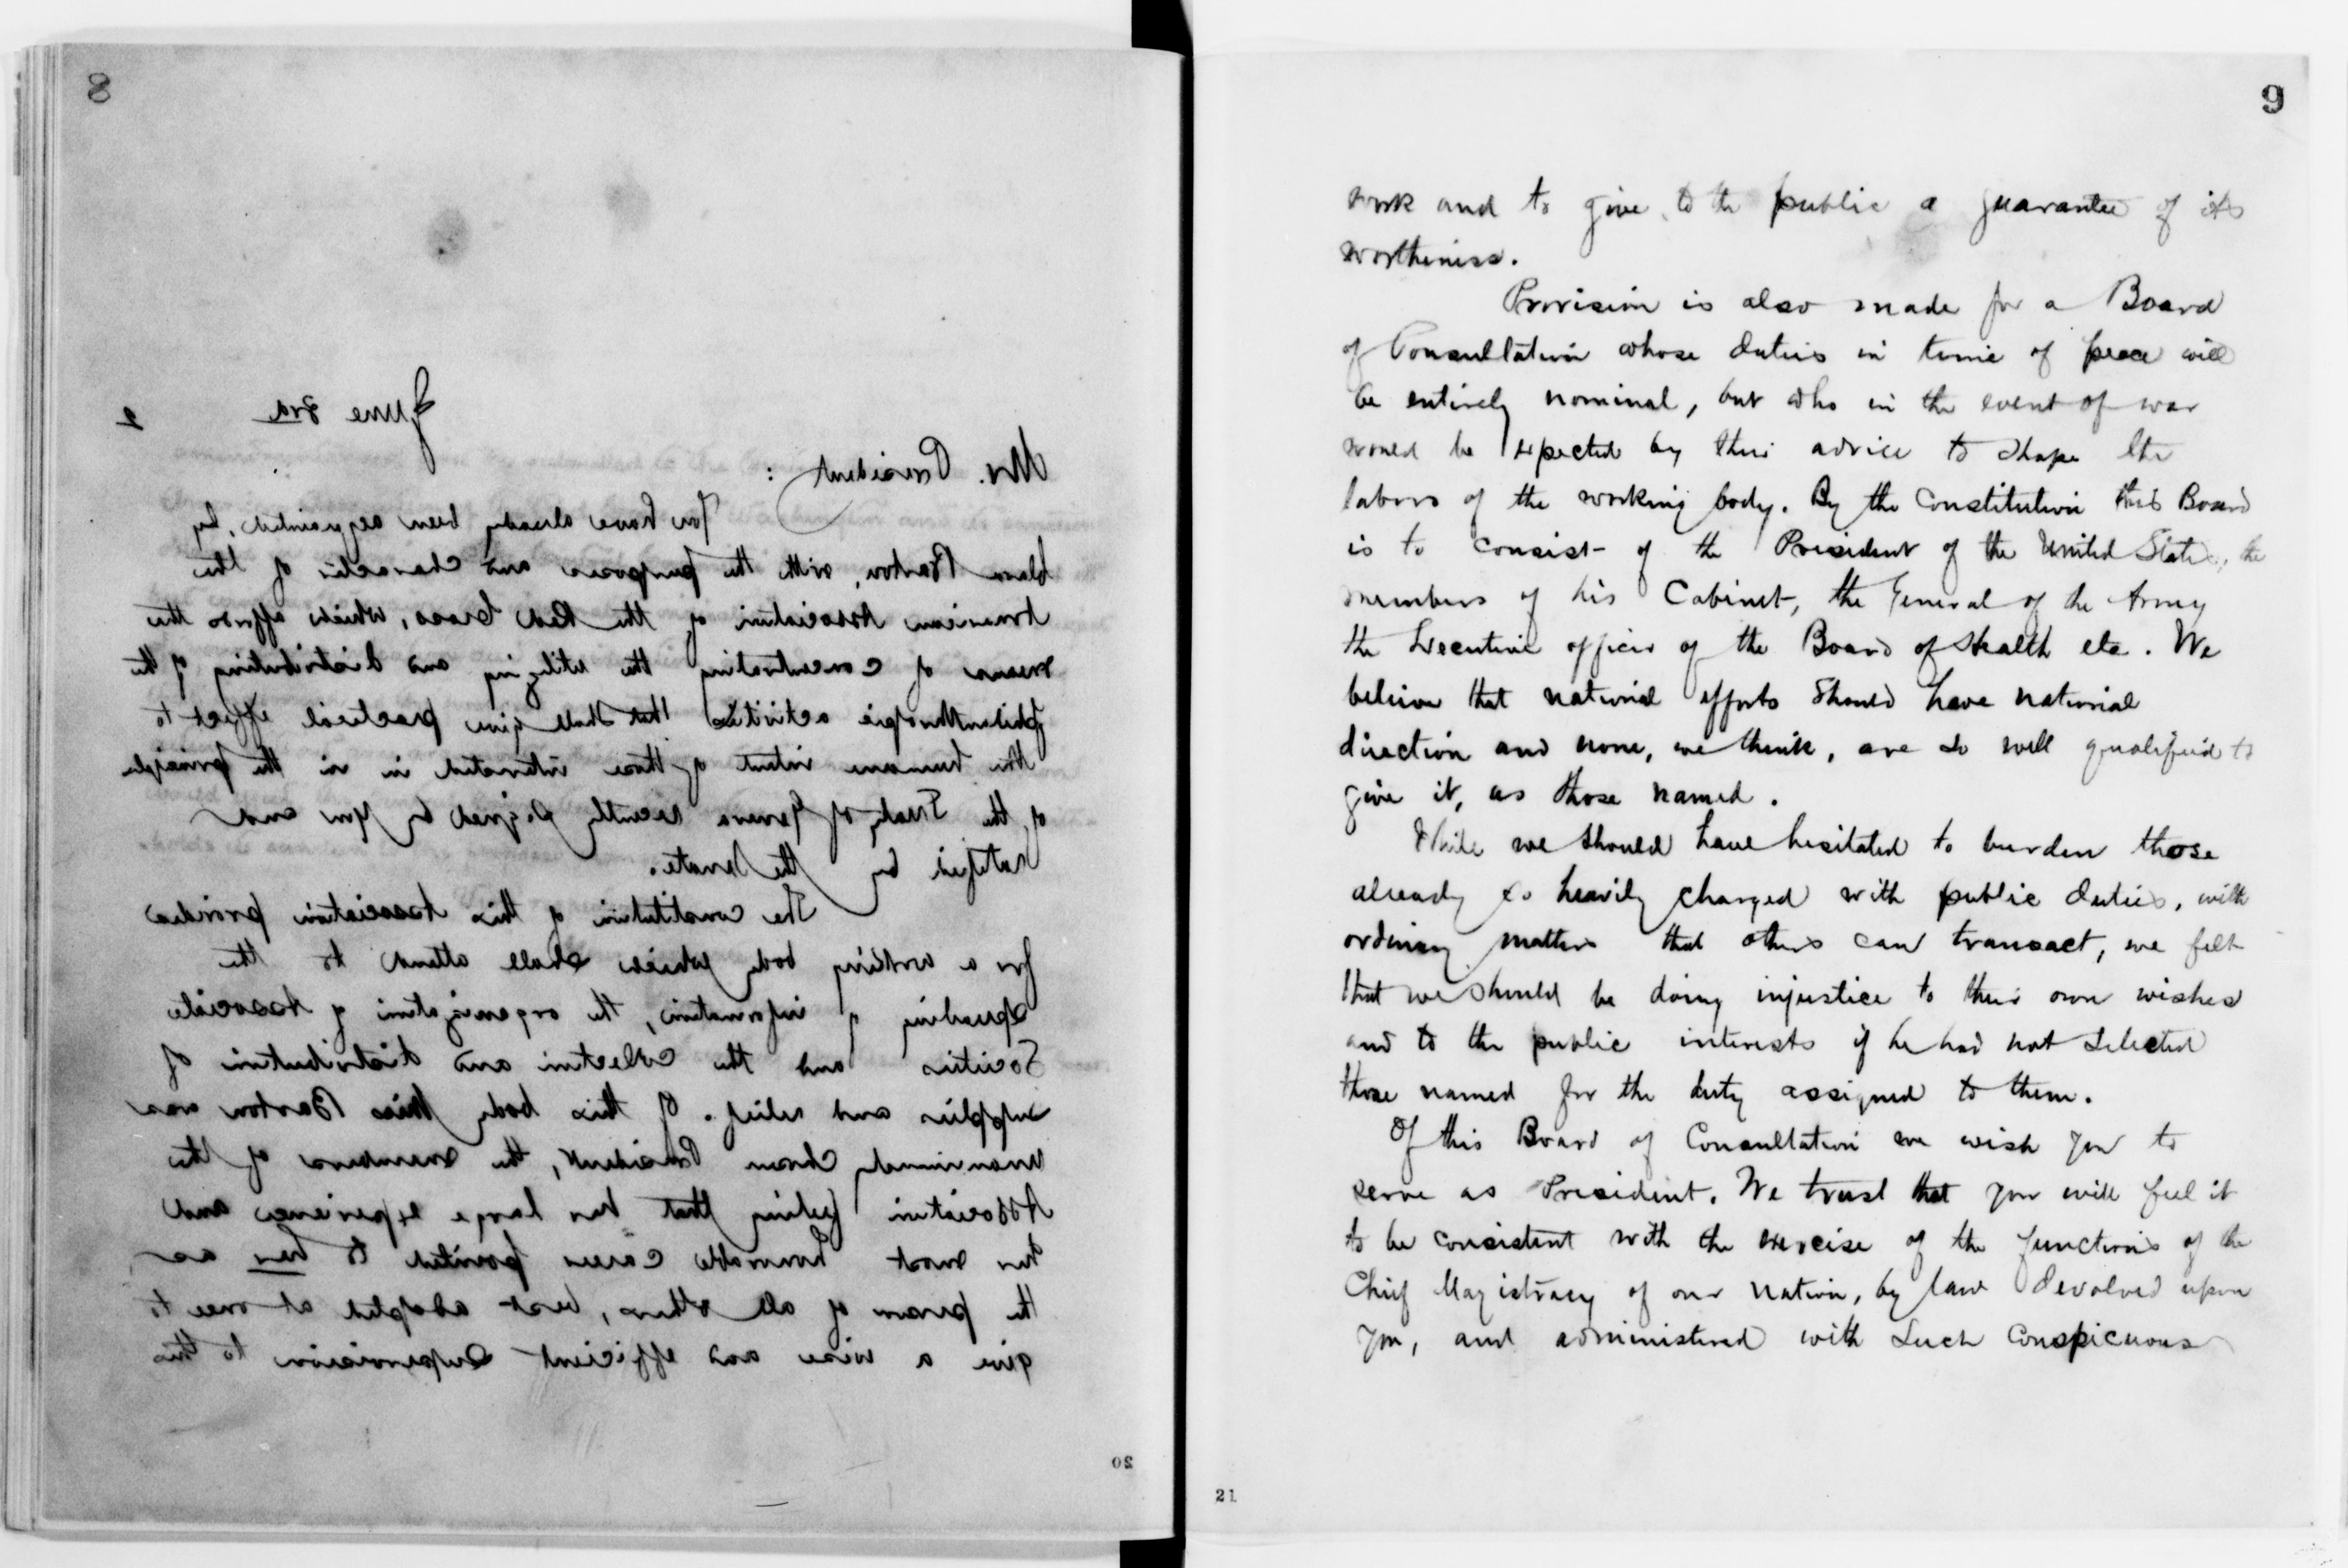 8
June 3rd 2
Mr. President :
You have already been acquainted, by
Clara Barton, with the purposes and character of the
American Association of the Red Cross, which affords the
means of concentrating the utilizing and distributing of the
philanthropic activities that shall give practical effect to
the humane intent of those interested in in the principle
of the Treaty of Geneva recently signed by you and
ratified by the Senate.
The constitution of this Association provides
for a working body which shall attend to the
spreading of information, the organization of Associate
Societies and the collection and distribution of
supplies and relief. Of this body Miss Barton was
unanimously chosen President, the members of the
Association feeling that her large experience and
her most honorable career pointed to her as
the person of all others, best adapted at once to
give a wise and efficient supervision to this
20
9
work and to give to the public a guarantee of its
worthiness.
Provision is also made for a Board
of Consultation whose duties in time of peace will
be entirely nominal, but who in the event of war
would be expected by their advice to shape the
labors of the working body. By the Constitution this Board
is to consist of the President of the United States, the
members of his Cabinet, the General of the Army
the Executive officer of the Board of Health etc. We
believe that national efforts should have national
direction and none, we think, are so well qualified to
give it, as those named.
While we should have hesitated to burden those
already so heavily charged with public duties, with
ordinary matters that others can transact, we felt
that we should be doing injustice to their own wishes
and to the public interests if he had not selected
those named for the duty assigned to them.
Of this Board of Consultation we wish you to
serve as President. We trust that you will feel it
to be consistent with the exercise of the functions of the
Chief Magistracy of our nation, by law devolved upon
you, and administered with such conspicuous
21